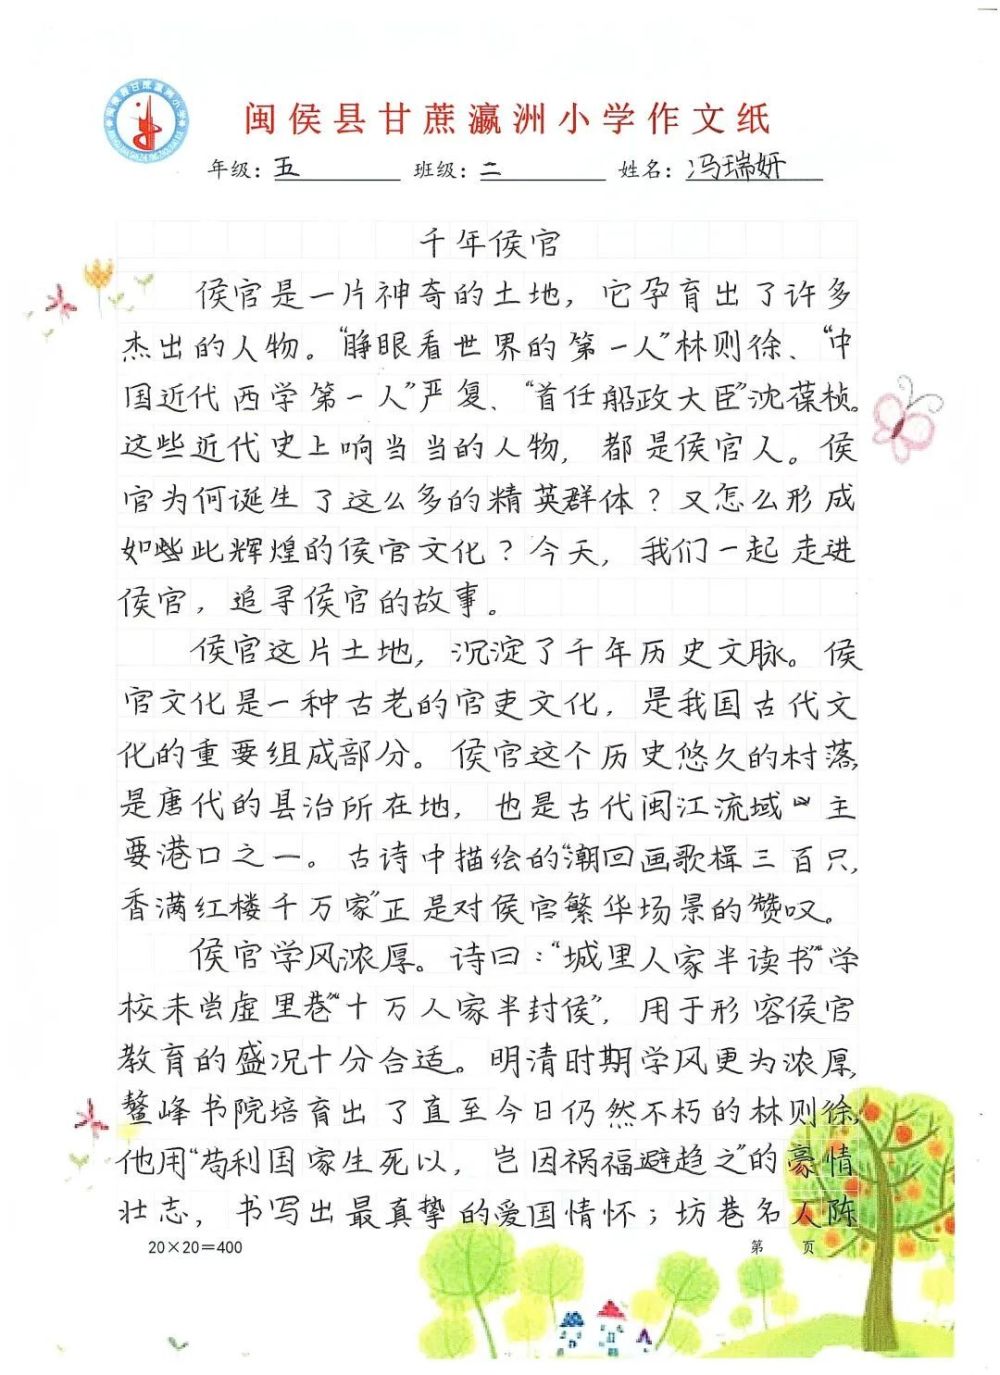 闽侯县甘蔗瀛洲小学作文纸
年级：五 班级：二 姓名：冯瑞妍
千年侯官
侯官是一片神奇的土地，它孕育出了许多
杰出的人物。“睁眼看世界的第一人”林则徐、“中
国近代西学第一人”严复、“首任船政大臣”沈葆桢。
这些近代史上响当当的人物，都是侯官人。侯
官为何诞生了这么多的精英群体？又怎么形成
如些此辉煌的侯官文化？今天，我们一起走进
侯官，追寻侯官的故事。
侯官这片土地，沉淀了千年历史文脉。侯
官文化是一种古老的官吏文化，是我国古代文
化的重要组成部分。侯官这个历史悠久的村落，
是唐代的县治所在地，也是古代闽江流域四主
要港口之一。古诗中描绘的“潮回画歌楫三百只，
香满红楼千万家”正是对侯官繁华场景的赞叹。
侯官学风浓厚。诗曰：“城里人家半读书”“学
校未尝虚里巷”“十万人家半封侯”，用于形容侯官
教育的盛况十分合适。明清时期学风更为浓厚，
鳌峰书院培育出了直至今日仍然不朽的林则徐，
他用“苟利国家生死以，岂因祸福避趋之”的豪情
壮志，书写出最真挚的爱国情怀；坊巷名人陈
20×20=400 第 页